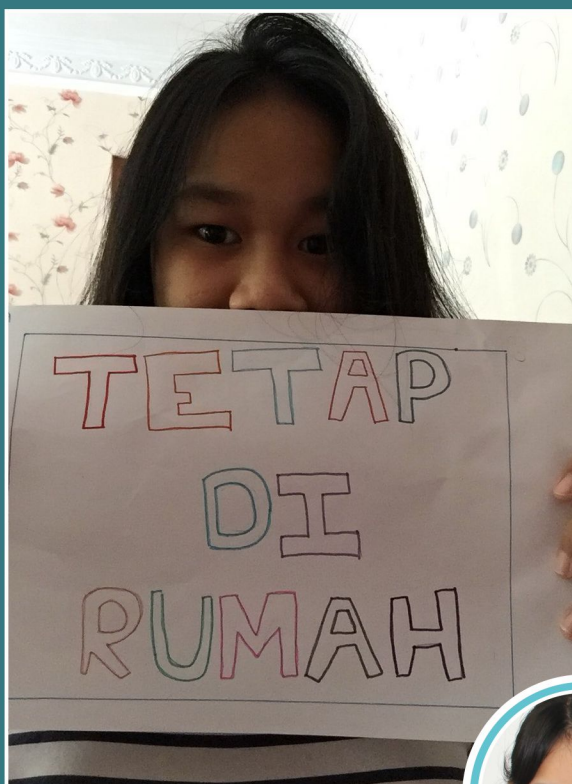 TETAP
DI
RUMAH